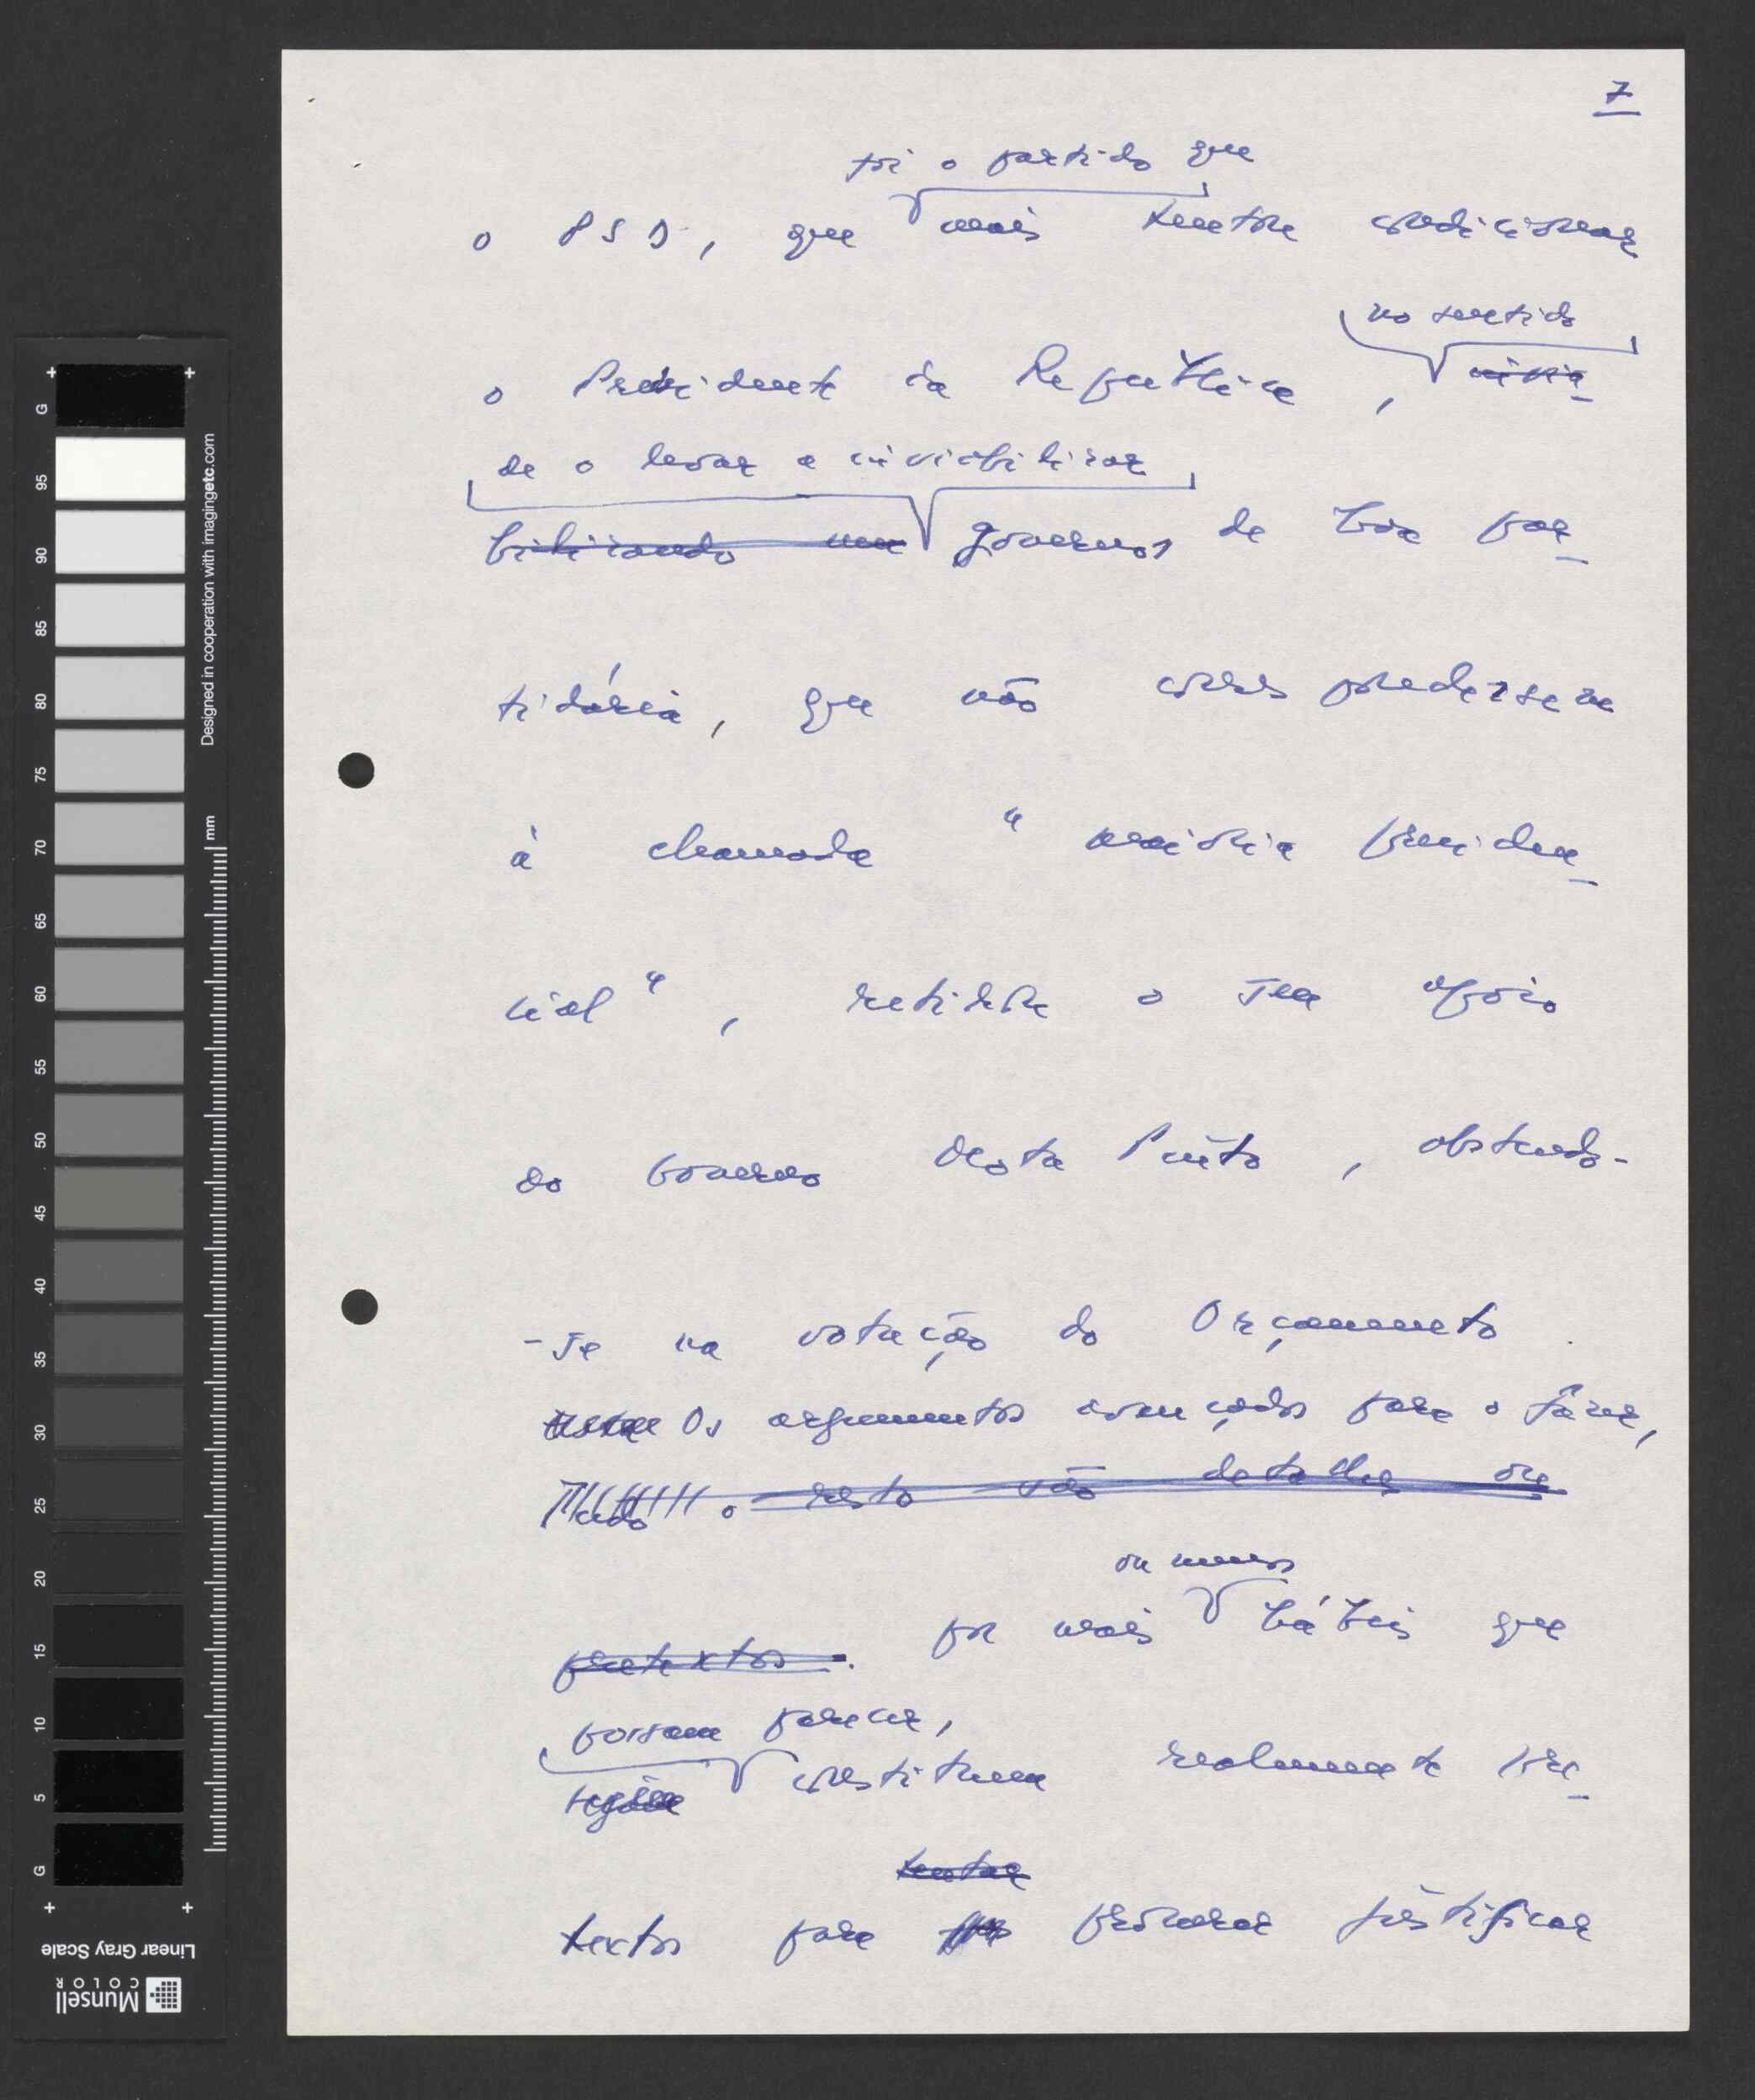 7
foi o partido que
o PSD, que mais tentou condicionar
no sentido
o Presidente da República, invia-
de o levar a inviabilizar
bilizando um governos de base par-
tidária, que não correspondessem
à chamada "maioria presiden-
cial", retirou o seu apoio
ao Governo Mota Pinto, abstendo-
-se na votação do Orçamento.
Os argumentos avançados para o fazer,
Tudo o resto são detalhes ou
ou menos
pretextos. por mais hábeis que
possam parecer,
constituem realmente pre-
tentar
textos para procurar justificar
G 95 90 85 80 75 70 65 60 55 50 45 40 35 30 25 20 15 10 5 G
Designed in cooperation with imagingetc.com
mm
Linear Gray Scale
Munsell
COLOR